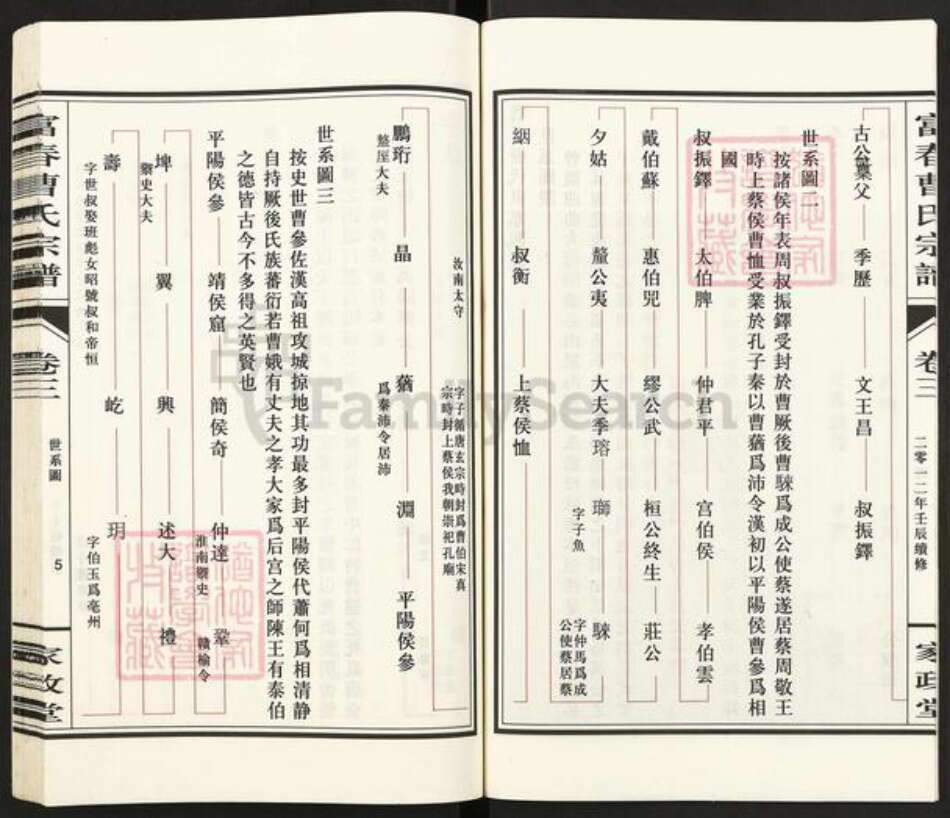 富春曹氏宗譜
卷三
二零一二年壬辰續修
家政堂
古公亶父 季歷 文王昌 叔振鐸
世系圖二
按諸侯年表周叔振鐸受封於曹厥後曹騋爲成公使蔡遂居蔡周敬王
時上蔡侯曹恤受業於孔子秦以曹蕕爲沛令漢初以平陽侯曹參爲相
國
叔振鐸 太伯脾 仲君平 宫伯侯 孝伯雲
戴伯蘇 惠伯兕 繆公武 桓公終生 莊公
夕姑 釐公夷 大夫季瑢 瑡 騋
字子魚
字仲馬爲成
公使蔡居蔡
絪 叔衡 上蔡侯恤
字子循唐玄宗時封爲曹伯宋真
宗時封上蔡侯我朝崇祀孔廟
汝南太守
鵬珩 晶 蕕 淵 平陽侯參
盩厔大夫
爲秦沛令居沛
世系圖三
按史世曹參佐漢高祖攻城掠地其功最多封平陽侯代蕭何爲相清静
自持厥後氏族蕃衍若曹娥有丈夫之孝大家爲后宫之師陳王有泰伯
之德皆古今不多得之英賢也
平陽侯參 靖侯窟 簡侯奇 仲達 鞏
淮南刺史
贛榆令
埤 翼 興 述大 禮
刺史大夫
壽 屹 玥
字世叔娶班彪女昭號叔和帝恒
字伯玉爲亳州
富春曹氏宗譜
卷三
世系圖
5
家政堂
FamilySearch